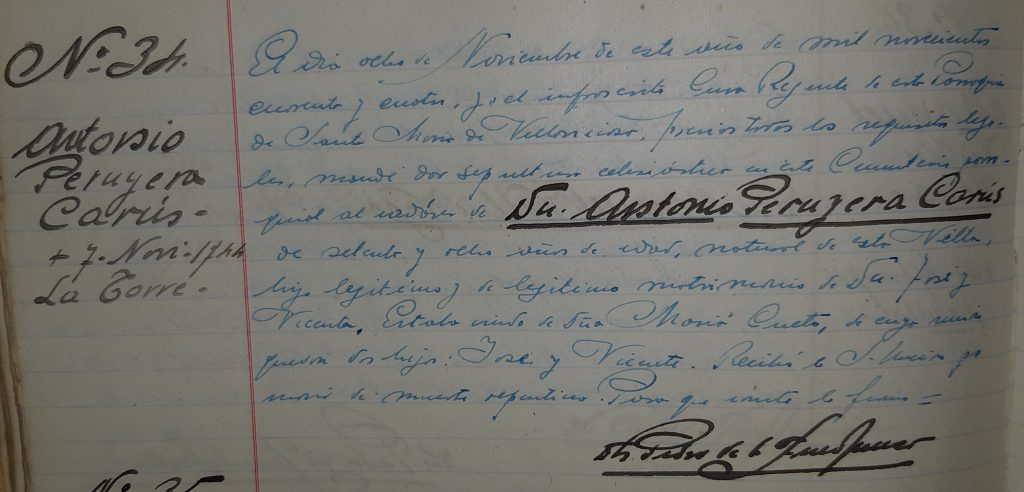 Nº 34.
Antonio
Peruyera
Carús-
+ 7-Novi-1744
La Torre-
El dia ocho de Noviembre de este año de mil novecientos
cuarenta y cuatro, yo el infrascrito Cura Regente de esta Parroquia
de Santa Maria de Villaviciosa, previos todos los requisitos lega-
les, mandé dar sepultura eclesiástica en este Cementerio parro-
quial al cadáver de Dn. Antonio Peruyera Carús
de setenta y ocho años de edad, natural de esta Villa,
hijo legitimo y de legitimo matrimonio de Dn. José y
Vicenta. Estaba viudo de Dña Maria Cueto, de cuya unión
quedan dos hijos: José y Vicente. Recibió la S. Unción pr
morir de muerte repentina. Para que conste lo firmo =
Pedro de la
Nº 35